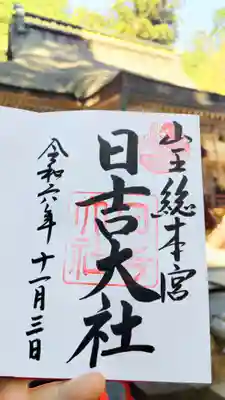 山王総本宮
日吉大社
令和六年十一月三日